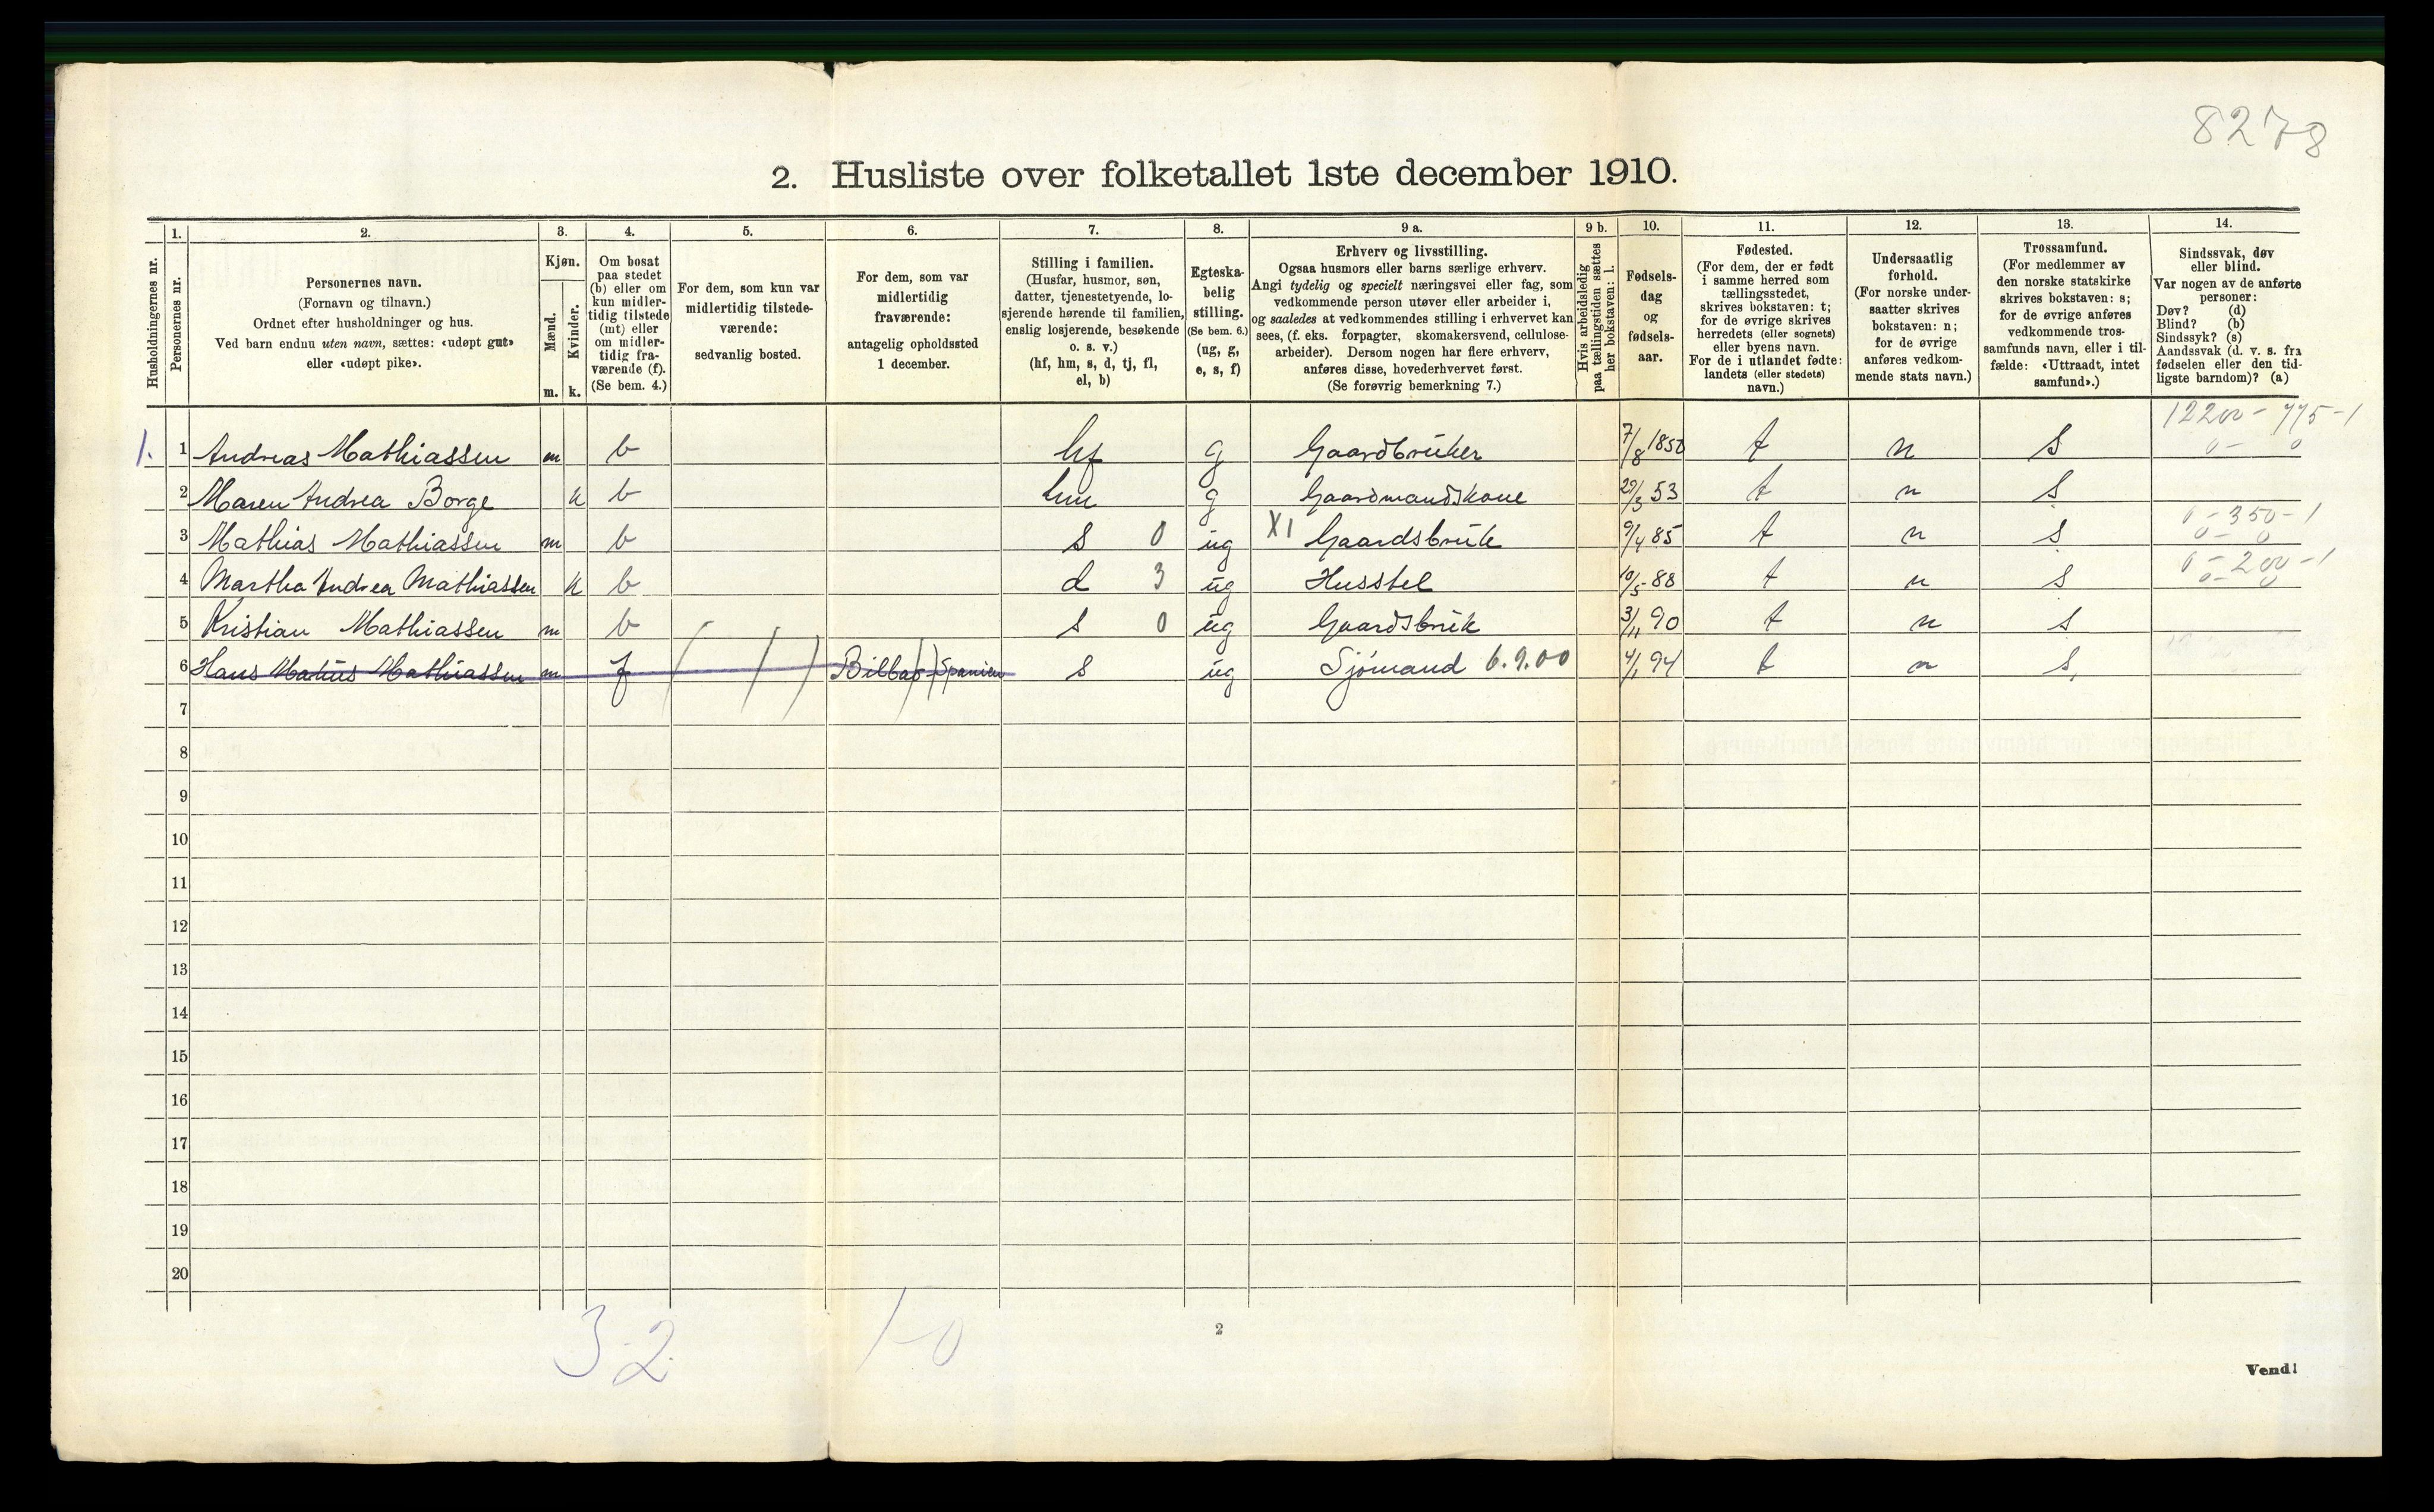 8278
2. Husliste over folketallet 1ste december 1910.
Husholdningernes nr.
1.
Personernes nr.
2.
Personernes navn.
(Fornavn og tilnavn.)
Ordnet efter husholdninger og hus.
Ved barn endnu uten navn, sættes: «udøpt gut»
eller «udøpt pike».
3.
Kjøn.
Mænd.
Kvinder.
m. k.
4.
Om bosat
paa stedet
(b) eller om
kun midler-
tidig tilstede
(mt) eller
om midler-
tidig fra-
værende (f).
(Se bem. 4.)
5.
For dem, som kun var
midlertidig tilstede-
værende:
sedvanlig bosted.
6.
For dem, som var
midlertidig
fraværende:
antagelig opholdssted
1 december.
7.
Stilling i familien.
(Husfar, husmor, søn,
datter, tjenestetyende, lo-
sjerende hørende til familien,
enslig losjerende, besøkende
o. s. v.)
(hf, hm, s, d, tj, fl,
el, b)
8.
Egteska-
belig
stilling.
(Se bem. 6.)
(ug, g,
e, s, f)
9 a.
Erhverv og livsstilling.
Ogsaa husmors eller barns særlige erhverv.
Angi tydelig og specielt næringsvei eller fag, som
vedkommende person utøver eller arbeider i,
og saaledes at vedkommendes stilling i erhvervet kan
sees, (f. eks. forpagter, skomakersvend, cellulose-
arbeider). Dersom nogen har flere erhverv,
anføres disse, hovederhvervet først.
(Se forøvrig bemerkning 7.)
9 b.
Hvis arbeidsledig
paa tællingstiden sættes
her bokstaven: l.
10.
Fødsels-
dag
og
fødsels-
aar.
11.
Fødested.
(For dem, der er født
i samme herred som
tællingsstedet,
skrives bokstaven: t;
for de øvrige skrives
herredets (eller sognets)
eller byens navn.
For de i utlandet fødte:
landets (eller stedets)
navn.)
12.
Undersaatlig
forhold.
(For norske under-
saatter skrives
bokstaven: n;
for de øvrige
anføres vedkom-
mende stats navn.)
13.
Trossamfund.
(For medlemmer av
den norske statskirke
skrives bokstaven: s;
for de øvrige anføres
vedkommende tros-
samfunds navn, eller i til-
fælde: «Uttraadt, intet
samfund».)
14.
Sindssvak, døv
eller blind.
Var nogen av de anførte
personer:
Døv? (d)
Blind? (b)
Sindssyk? (s)
Aandssvak (d. v. s. fra
fødselen eller den tid-
ligste barndom)? (a)
12200 - 775 - 1
0 - 0
1. 1 Andreas Mathiassen m b hf g Gaardbruker 7/8 1850 t n S
2 Maren Andrea Borge k b hm g Gaardmandskone 29/3 53 t n S
0 - 350 - 1
0 - 0
3 Mathias Mathiassen m b s 0 ug X1 Gaardsbruk 9/4 85 t n S
0 - 200 - 1
0 - 0
4 Martha Andrea Mathiassen k b d 3 ug Husstel 10/5 88 t n S
5 Kristian Mathiassen m b s 0 ug Gaardsbruk 3/11 90 t n S
6 Hans Matius Mathiassen m f Bilbao Spanien s ug Sjømand 6.9.00 4/1 94 t n S
7
8
9
10
11
12
13
14
15
16
17
18
19
20
3-2 1-0
2
Vend!